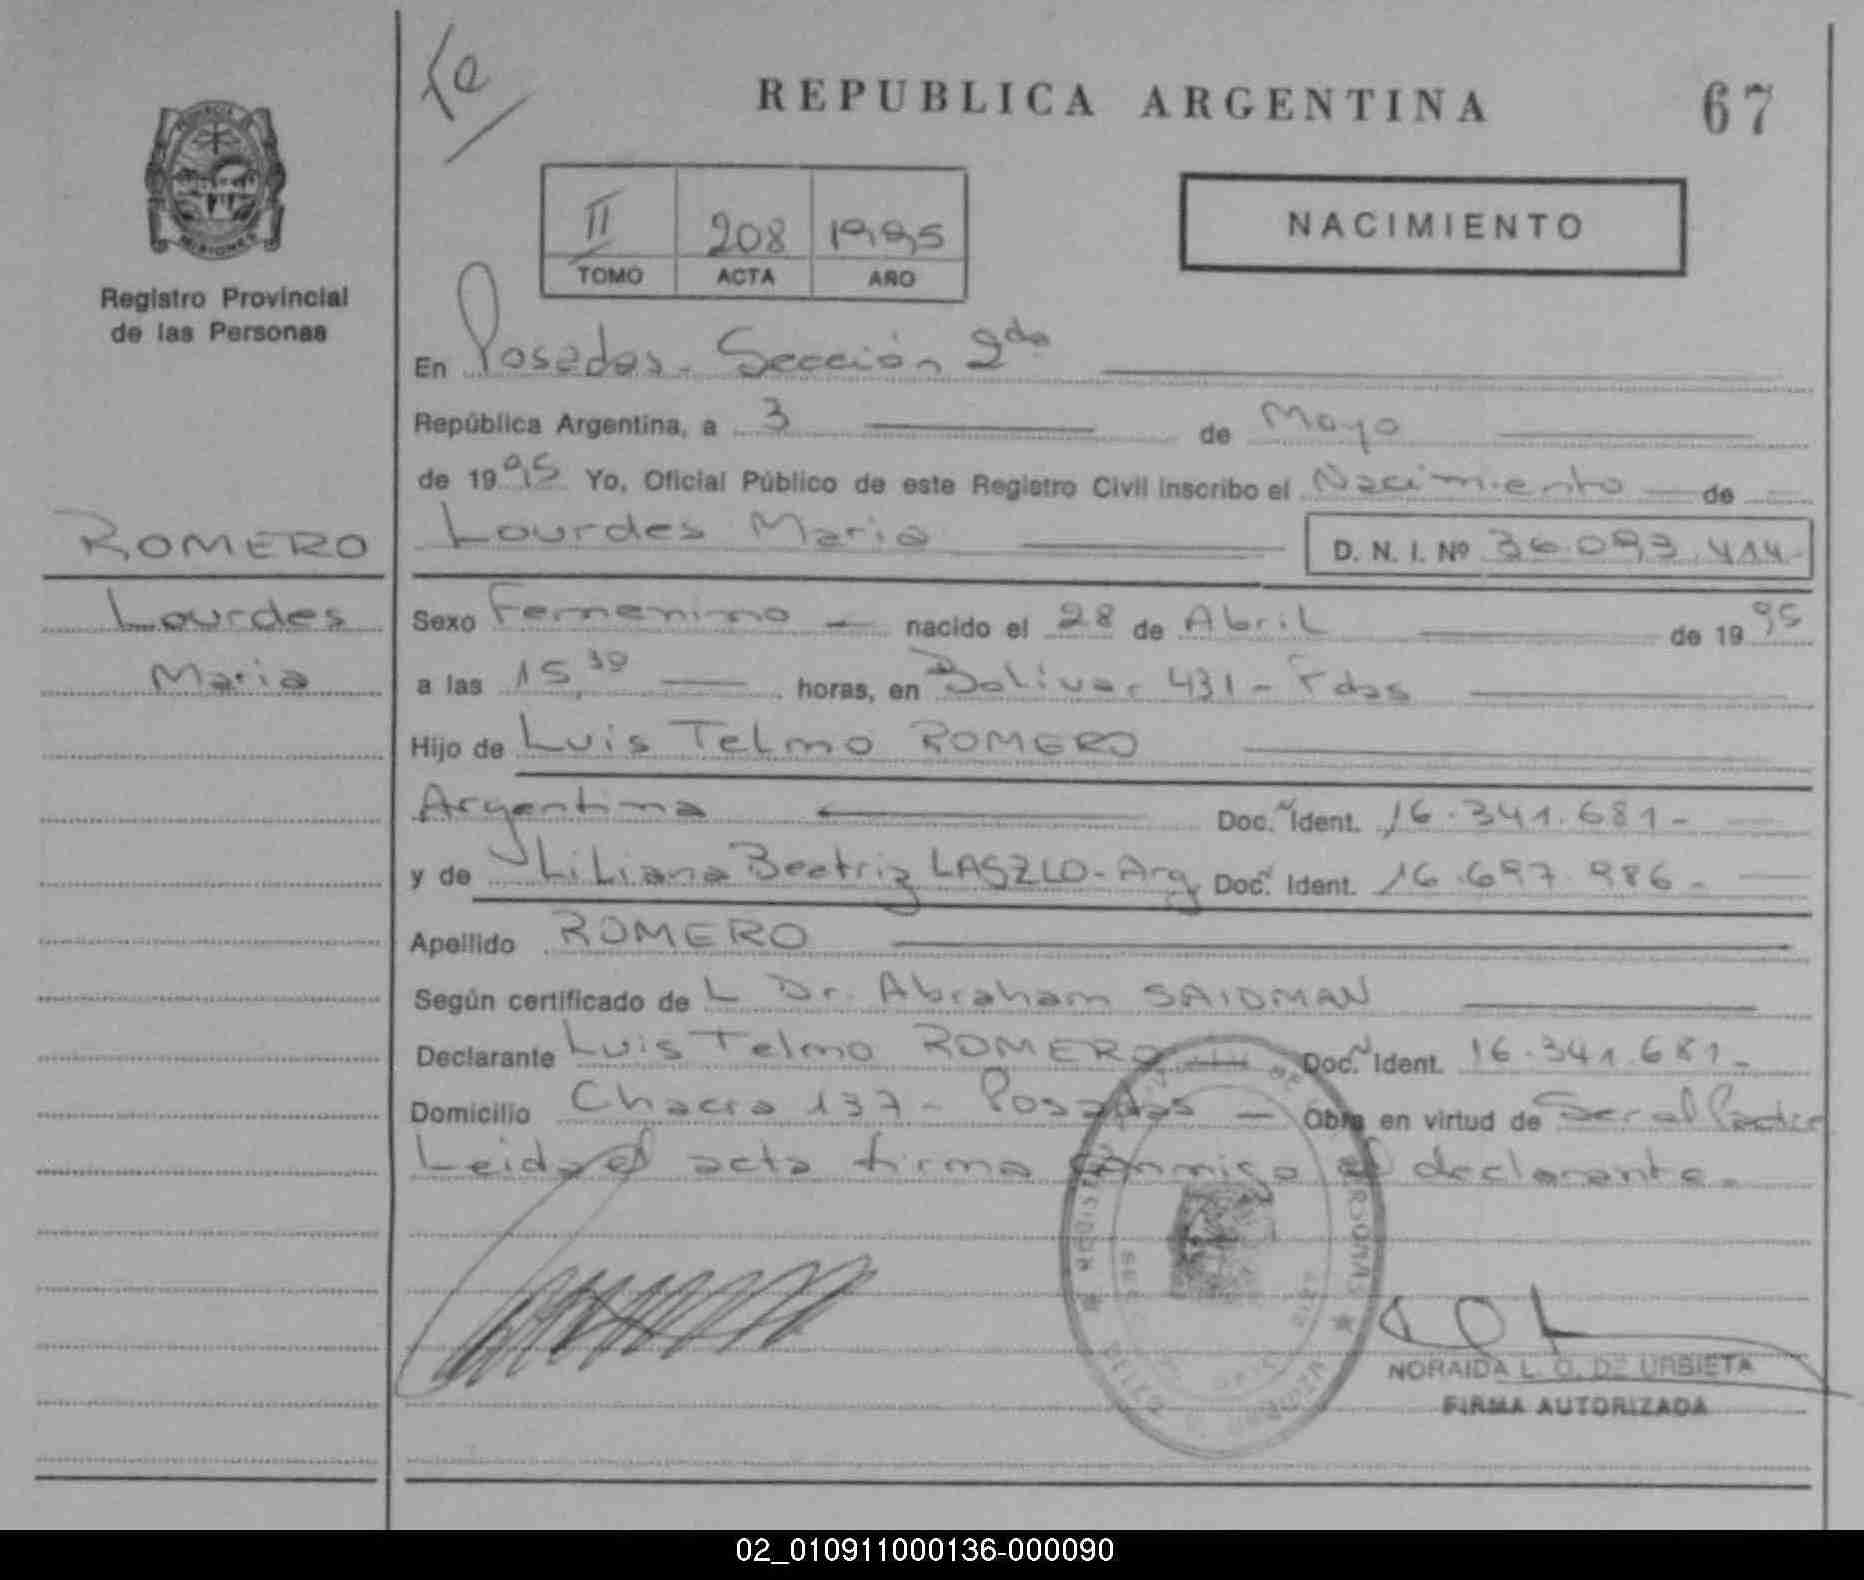 Fe
REPUBLICA ARGENTINA
67
II 208 1995
TOMO ACTA AÑO
NACIMIENTO
MISIONES
Registro Provincial
de las Personas
En Posadas - Sección 2da
República Argentina, a 3 de Mayo
de 1995 Yo, Oficial Público de este Registro Civil inscribo el Nacimiento de
ROMERO
Lourdes Maria
D. N. I. Nº 36.093.414
Lourdes
Sexo Femenino nacido el 28 de Abril de 1995
Maria
a las 15,30 horas, en Bolivar 431 - Pdas
Hijo de Luis Telmo ROMERO
Argentina Doc. Ident. 16.341.681-
y de Liliana Beatriz LASZLO - Arg Doc. Ident. 16.697.986-
Apellido ROMERO
Según certificado de L Dr. Abraham SAIDMAN
Declarante Luis Telmo ROMERO Doc. Ident. 16.341.681-
Domicilio Chacra 137 - Posadas - Obra en virtud de Ser el Padre
Leida el acta firma conmigo el declarante.
NORAIDA L. O. DE URBIETA
FIRMA AUTORIZADA
02_010911000136-000090